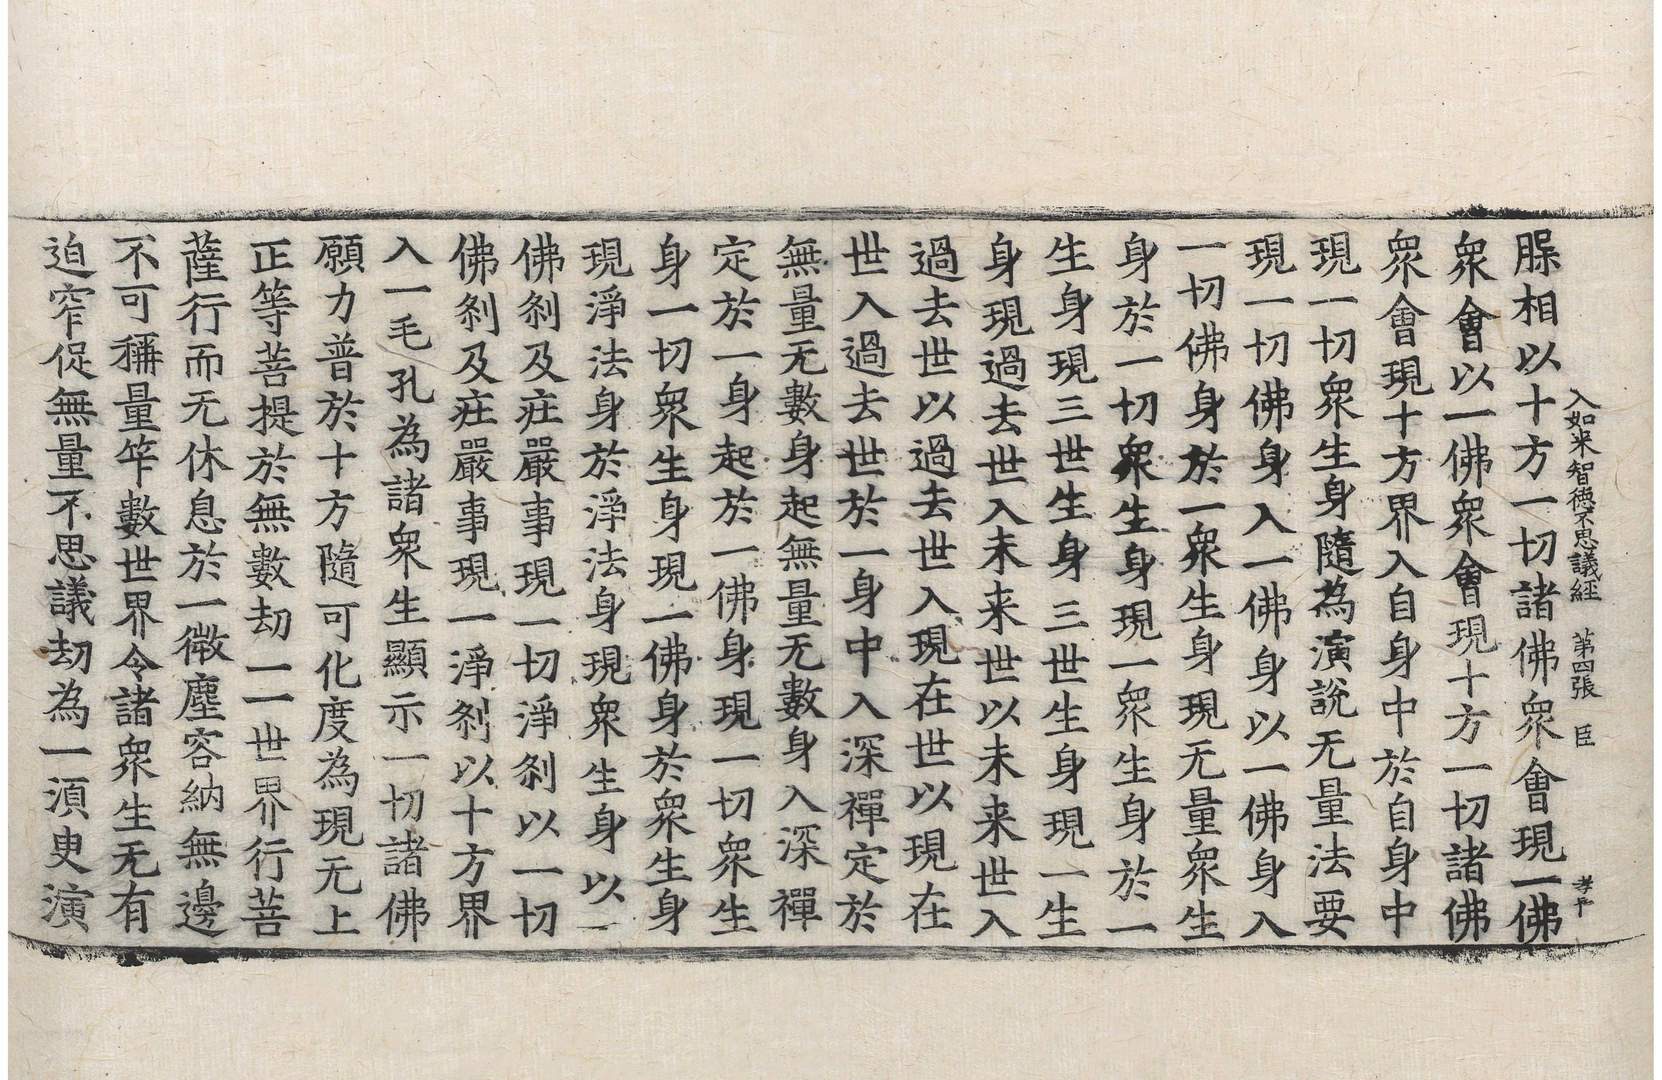 入如来智德不思議經 第四張 臣 孝干
相以十方一切諸佛眾會現一佛
眾會以一佛眾會現十方一切諸佛
眾會現十方界入自身中於自身中
現一切眾生身隨為演說无量法要
現一切佛身入一佛身以一佛身入
一切佛身於一眾生身現无量眾生
身於一切眾生身現一眾生身於一
生身現三世生身三世生身現一生
身現過去世入未来世以未来世入
過去世以過去世入現在世以現在
世入過去世於一身中入深禪定於
無量无數身起無量无數身入深禪
定於一身起於一佛身現一切眾生
身一切眾生身現一佛身於眾生身
現淨法身於淨法身現眾生身以一
佛刹及疘嚴事現一切淨刹以一切
佛刹及疘嚴事現一淨刹以十方界
入一毛孔為諸眾生顯示一切諸佛
願力普於十方隨可化度為現无上
正等菩提於無數劫一一世界行菩
薩行而无休息於一微塵容納無邊
不可稱量筭數世界令諸眾生无有
迫窄促無量不思議劫為一湏臾演